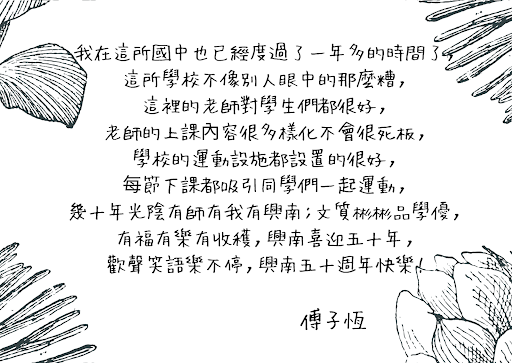 我在這所國中也已經度過了一年多的時間了,
這所學校不像別人眼中的那麼糟,
這裡的老師對學生們都很好,
老師的上課內容很多樣化不會很死板,
學校的運動設施都設置的很好,
每節下課都吸引同學們一起運動,
幾十年光陰有師有我有興南;文質彬彬品學優,
有福有樂有收穫,興南喜迎五十年,
歡聲笑語樂不停,興南五十週年快樂!
傅子恆